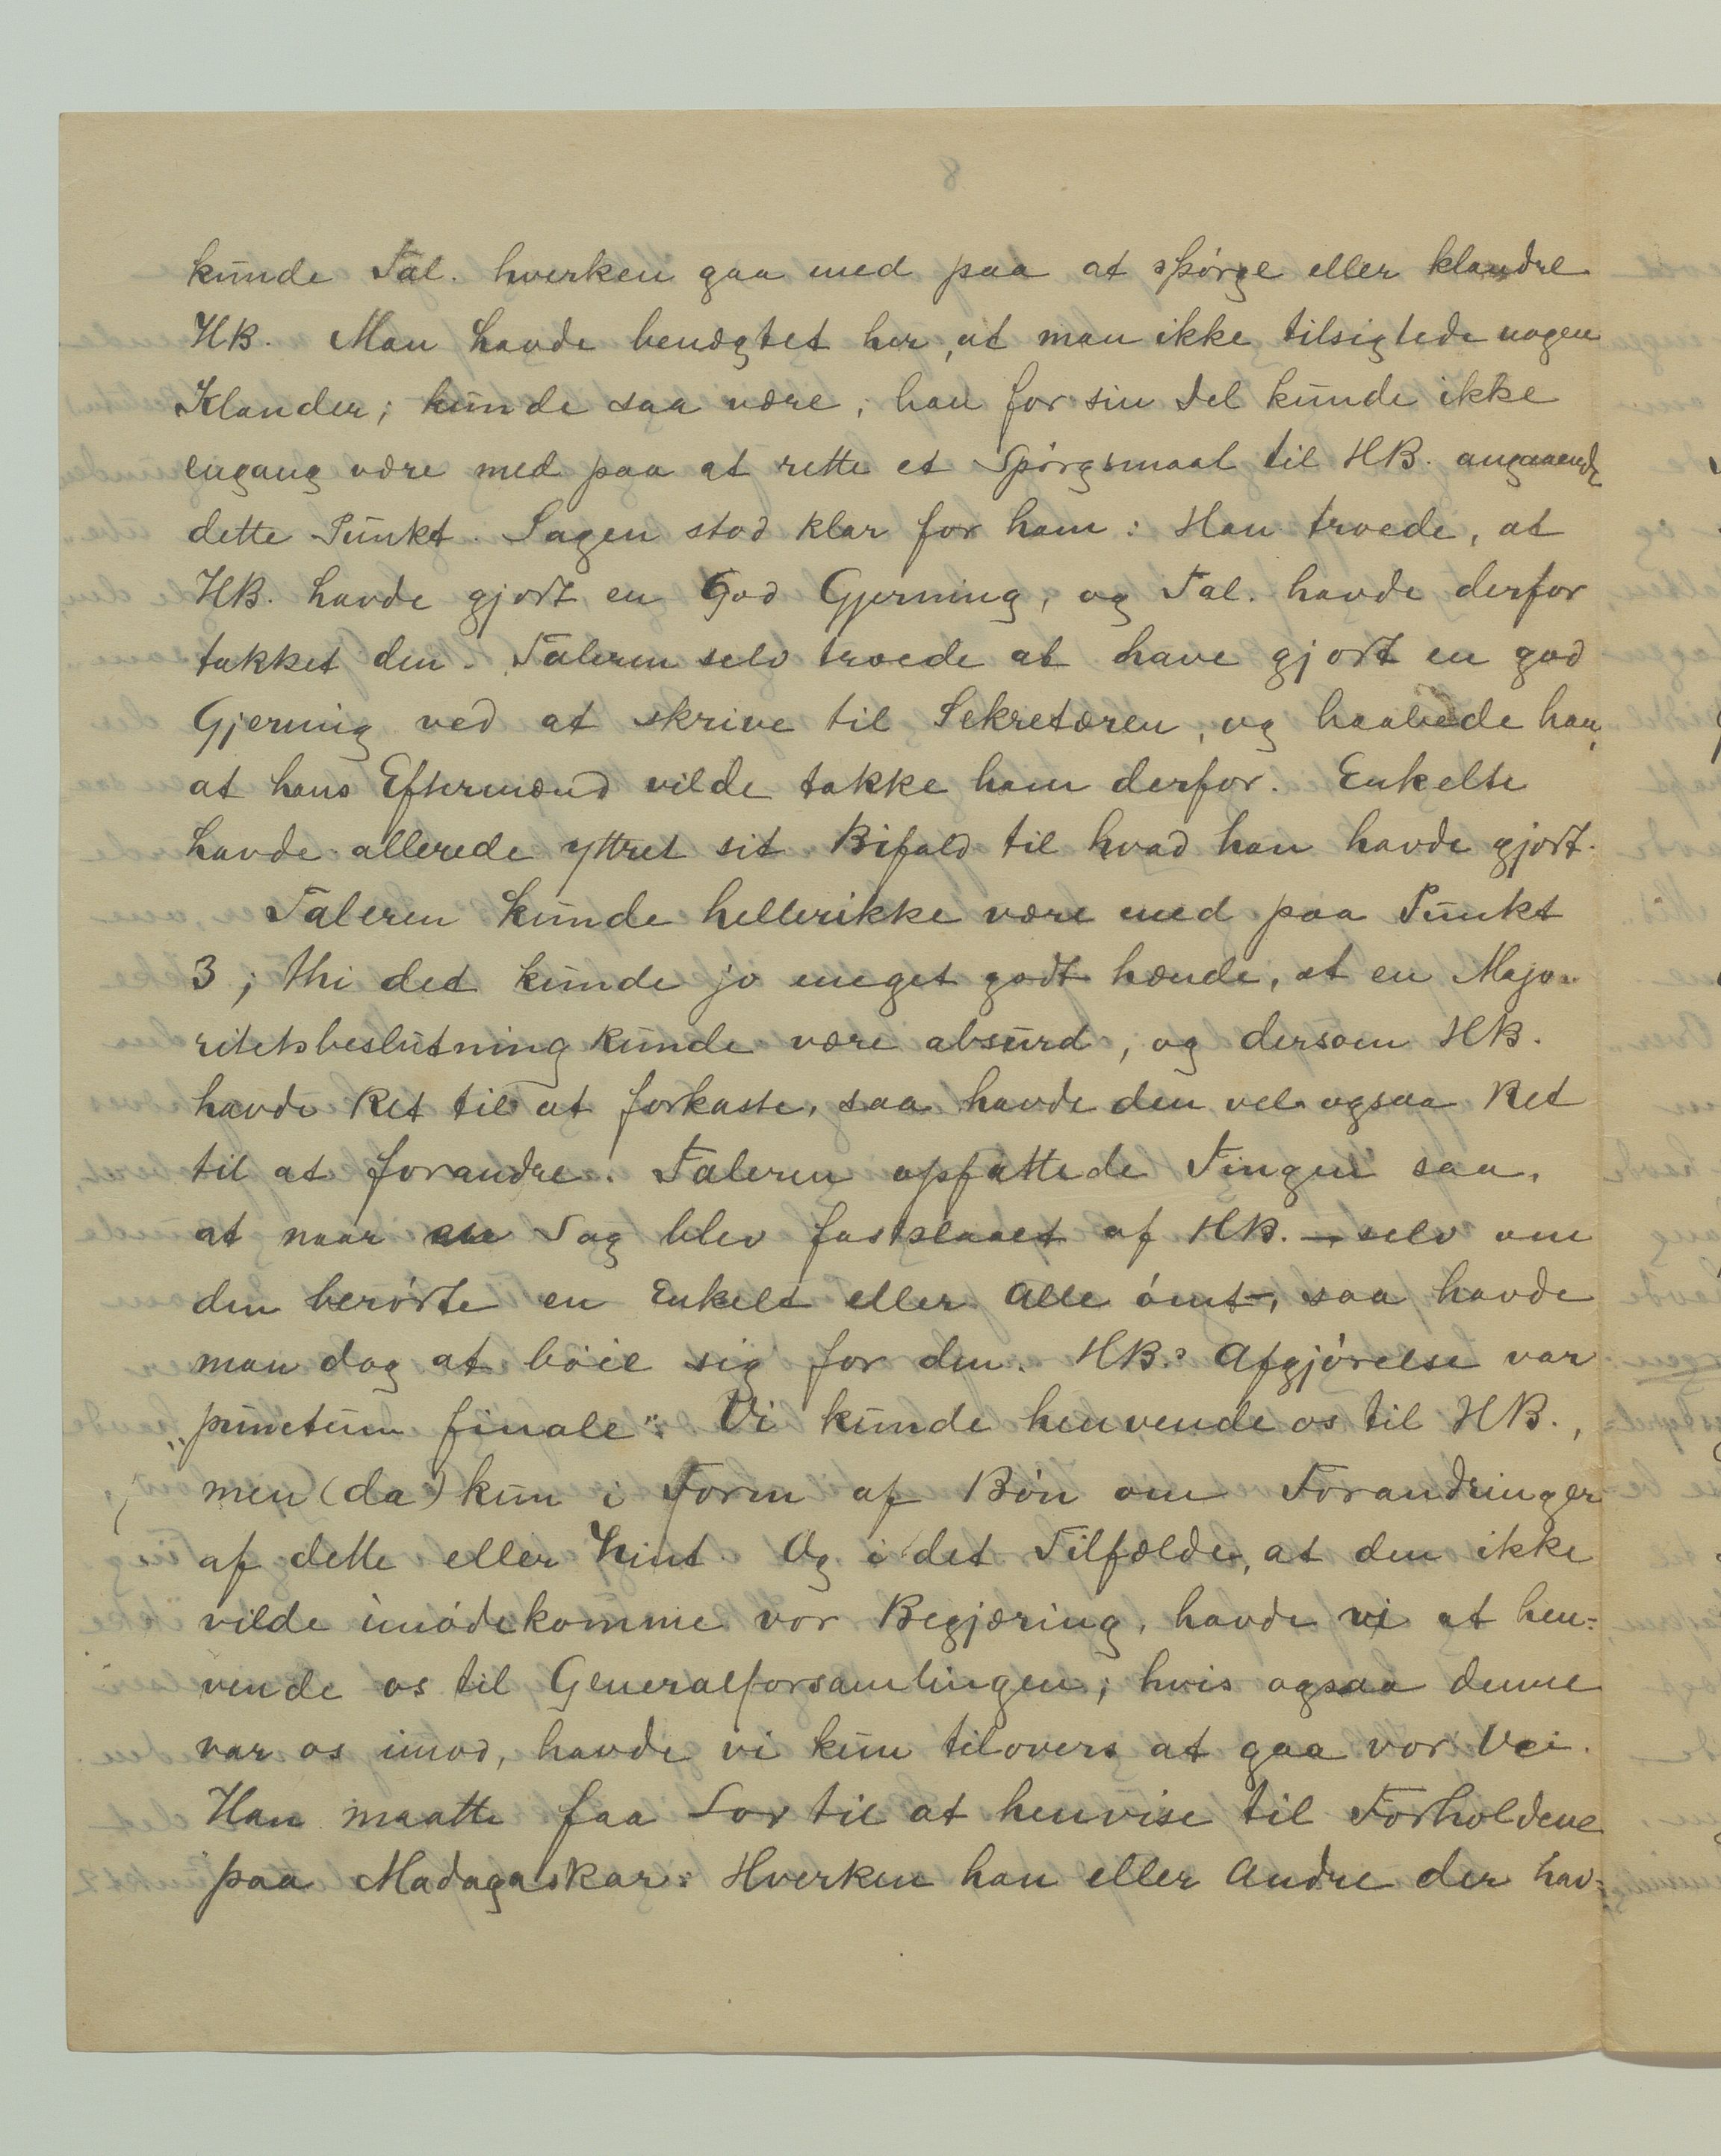 kunde Tal. hverken gaa med paa at spørge eller klandre
HB. Man havde benægtet her, at man ikke tilsigtede nogen
Klander; kunde saa være; han for sin Del kunde ikke
engang være med paa at rette et Spørgsmaal til HB. angaaende
dette Punkt. Sagen stod klar for ham: Han troede, at
HB. havde gjort en God Gjerning, og Tal. havde derfor
takket den. Taleren selv troede at have gjort en god
Gjerning ved at skrive til Sekretæren, og haabede han,
at hans Eftermænd vilde takke ham derfor. Enkelte
havde allerede yttret sit Bifald til hvad han havde gjort.
Taleren kunde hellerikke være med paa Punkt
3; thi det kunde jo meget godt hænde, at en Majo-
ritetsbeslutning kunde være absurd, og dersom HB.
havde Ret til at forkaste, saa havde den vel ogsaa Ret
til at forandre. Taleren opfattede Tingen saa,
at naar en Sag blev fastslaaet af HB. – selv om
den berørte en Enkelt eller Alle ømt –, saa havde
man dog at bøie sig for den. HB.s Afgjørelse var
„punctum finale“. Vi kunde henvende os til HB.,
men (da) kun i Form af Bøn om Forandringer
af dette eller hint. Og i det Tilfælde, at den ikke
vilde imødekomme vor Begjæring, havde vi at hen-
vende os til Generalforsamlingen; hvis ogsaa denne
var os imod, havde vi kun tilovers at gaa vor Vei.
Han maatte faa Lov til at henvise til Forholdene
paa Madagaskar: Hverken han eller Andre der hav-